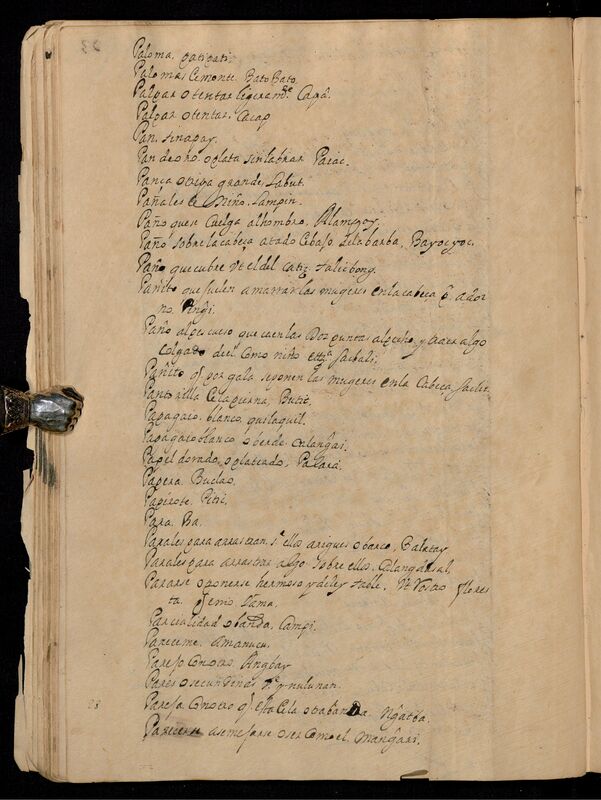 23
Paloma, patipati.
Palomas Cemonte. Bato Bato.
Palpar o tentar ligeramde. Capâ.
Palpar o tentar. Cacap
Pan. tinapay.
Pan de oro, o plata sin labrar Paiac.
Pança o tripa grande. Labut.
Pañales de Niño. Lampin.
Paño que se Cuelga al hombro. Alampoy.
Paño sobre la cabeça atado Cebajo de la barba, Bayocyoc.
Paño que cubre Vt el del Catiz. talicbong.
Pañito que suelen amarrar las mugeres en la cabeça P. ador
no. Pingi.
Paño al pescueso que caen las Doz puntas al pecho, y traer algo
Colgado del Como niño ettza. Sacbali.
Pañito q por gala se ponen las mugeres en la Cabeça,
Pantorilla Cela pierna, Butit.
Papagaio. blanco, quilaquil.
Papagaio blanco o berde.
Papel dorado, o plateado, Palara.
Papera. Buclao.
Papirote. Pitic.
Para. Ba.
Parales para arrastran. se ellos arigues o barco, Balatay
Parales para arrastrar algo sobre ellos. Calangdasal.
Pararse o ponerse hermoso y deleytable. Vt Vostro Flores
ta. tama.
Parcialidad o banda. Campi.
Pareceme. Amanucu.
Parejo Con otro. Angbay
Pares o secundinas Va. ynulunan.
Parejo Con otro q Esta Cela otra banda Ngatba.
Parecerse asemejarse o ser Como el. Mangñari.
23